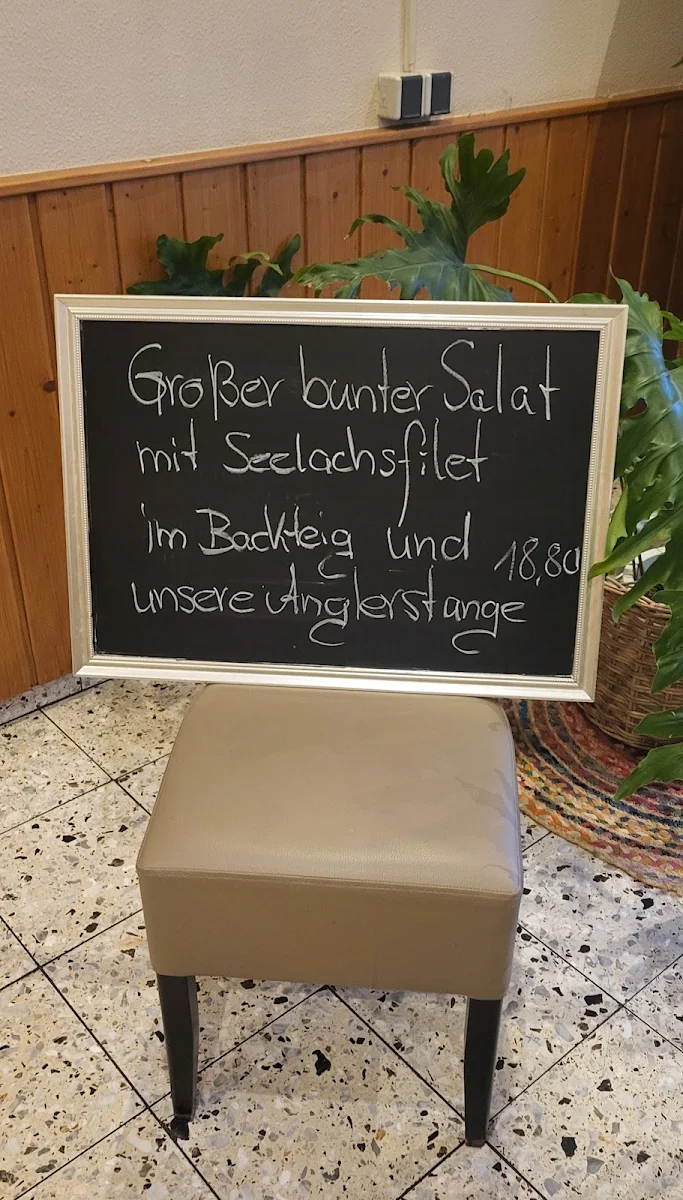 Großer bunter Salat
mit Seelachsfilet
im Backteig und 18,80
unsere Anglerstange